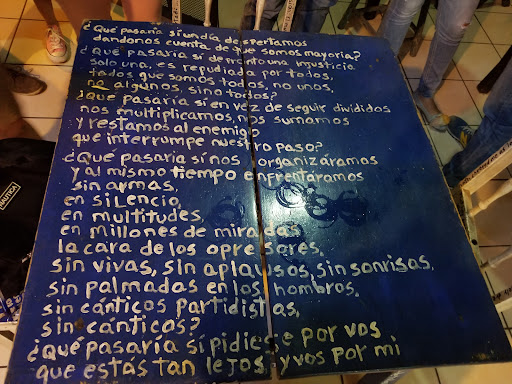 ¿Qué pasaría si un día despertamos
dandonos cuenta de que somos mayoría?
¿Qué pasaría si de pronto una injusticia
solo una, es repudiada por todos,
todos que somos todos, no unos,
no algunos, sino todos?
¿Qué pasaría si en vez de seguir divididos
nos multiplicamos, nos sumamos
y restamos al enemigo
que interrumpe nuestro paso?
¿Qué pasaría si nos organizáramos
y al mismo tiempo enfrentáramos
sin armas,
en silencio,
en multitudes,
en millones de miradas
la cara de los opresores,
sin vivas, sin aplausos, sin sonrisas,
sin palmadas en los hombros,
sin cánticos partidistas,
sin cánticos?
¿Qué pasaría si pidiese por vos
que estás tan lejos, y vos por mi
NAUTICA